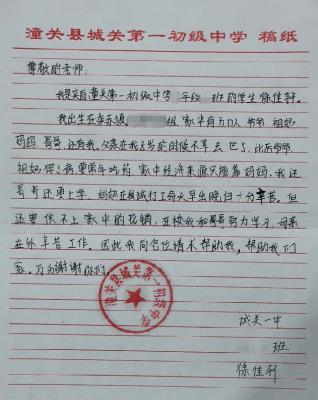 潼关县城关第一初级中学 稿纸
尊敬的老师:
我是来自潼关第一初级中学 年级 班的学生徐佳轩。
我出生在秦东镇 组,家中有五口人 爷爷 祖奶
妈妈 哥哥,还有我,父亲在我 岁的时候不幸去世了,此后爷爷
祖奶 得了病要常年吃药,家中经济来源只能靠妈妈,我还
哥哥还要上学,妈妈在县城打工每天早出晚归十分辛苦。但
还要供不上家中的花销,在校我和哥哥努力学习,母亲
在外辛苦工作。因此我向各位请求帮助我,帮助我们
家。万分谢谢你们。
潼关县城关第一初级中学
城关一中
班
徐佳轩